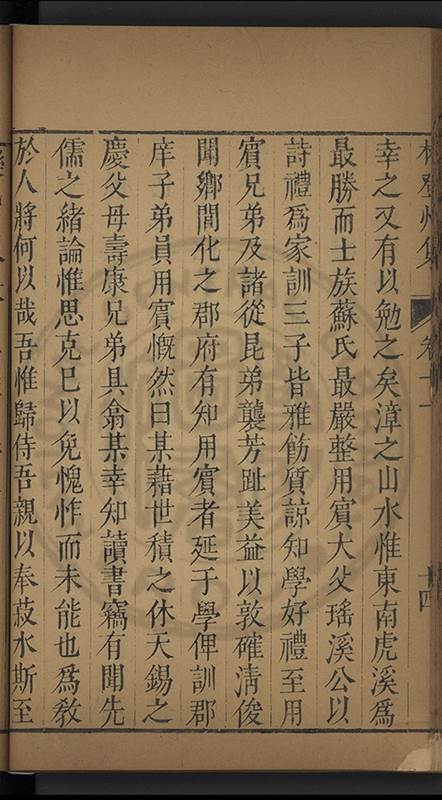 林登州集 卷十一 十四
幸之又有以勉之矣漳之山水惟東南虎溪爲
最勝而士族蘇氏最嚴整用賔大父瑤溪公以
詩禮爲家訓三子皆雅飭質諒知學好禮至用
賔兄弟及諸從昆弟襲芳趾美益以敦確淸俊
聞鄉閭化之郡府有知用賔者延于學俾訓郡
庠子弟員用賔慨然曰某藉世積之休天錫之
慶父母壽康兄弟具翕某幸知讀書竊有聞先
儒之緒論惟思克已以免愧怍而未能也爲敎
於人將何以哉吾惟歸侍吾親以奉菽水斯至